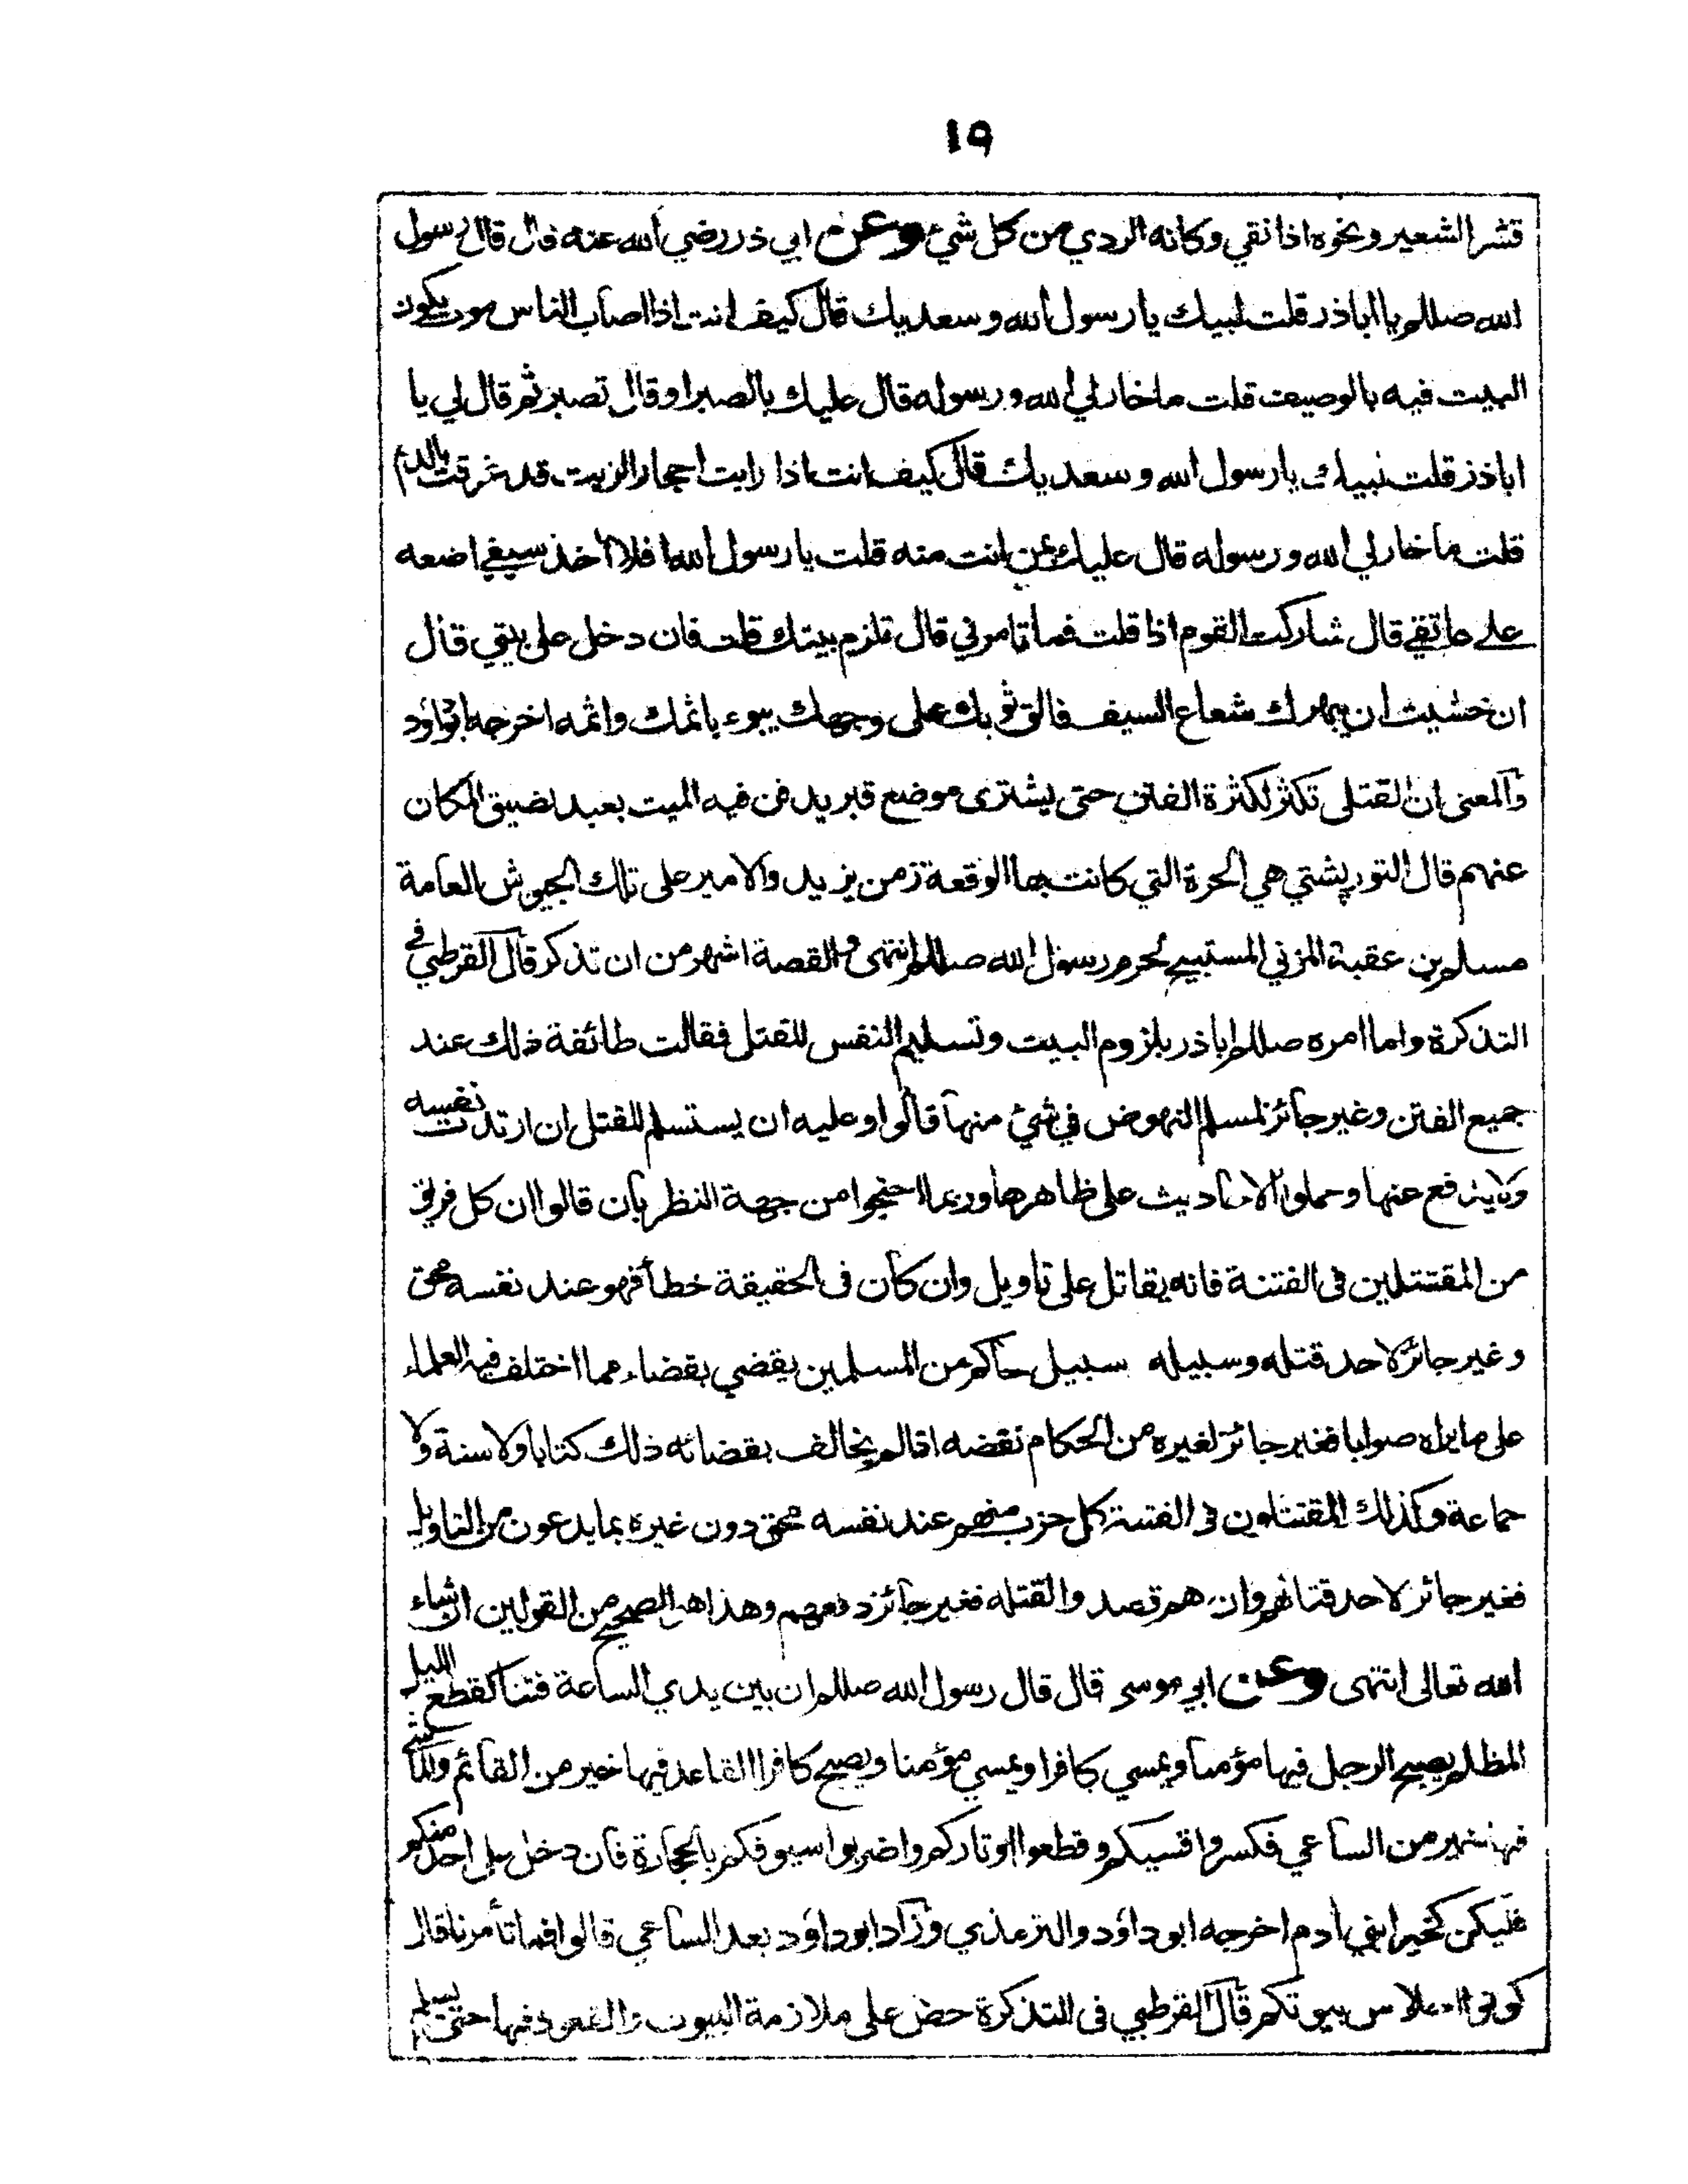 ١٩
قشر الشعير ونحوه اذا نقي وكانه الردي من كل شيء وعن ابي ذر رضي الله عنه قال قال رسول
الله صللم يا اباذر قلت لبيك يا رسول الله وسعديك قال كيف انت اذا اصاب الناس موت يكون
البيت فيه بالوصيف قلت ما خار لي الله ورسوله قال عليك بالصبر او قال تصبر ثم قال لي يا
اباذر قلت لبيك يا رسول الله وسعديك قال كيف انت اذا رايت احجار الزيت قد غرقت بالدم
قلت ما خار لي الله ورسوله قال عليك بمن انت منه قلت يا رسول الله افلا آخذ سيفي اضعه
على عاتقي قال شاركت القوم اذا قلت فما تامرني قال تلزم بيتك قلت فان دخل على بيتي قال
ان خشيت ان يبهرك شعاع السيف فالق ثوبك على وجهك يبوء باثمك واثمه اخرجه ابوداؤد
والمعنى ان القتلى تكثر لكثرة الفتن حتى يشترى موضع قبر يدفن فيه الميت بعبد لضيق المكان
عنهم قال التورپشتي هي الحرة التي كانت بها الوقعة زمن يزيد والامير على تلك الجيوش العامة
مسلم بن عقبة المزني المستبيح لحرم رسول الله صللم انتهى والقصة اشهر من ان تذكر قال القرطبي في
التذكرة واما امره صللم اباذر بلزوم البيت وتسليم النفس للقتل فقالت طائفة ذلك عند
جميع الفتن وغير جائز لمسلم النهوض في شيء منها قالوا وعليه ان يستسلم للقتل ان ارتدت نفسه
ولا يدفع عنها وحملوا الاحاديث على ظاهرها وربما احتجوا من جهة النظر بان قالوا ان كل فريق
من المقتتلين فى الفتنة فانه يقاتل على تاويل وان كان فى الحقيقة خطأ فهو عند نفسه محق
وغير جائز لاحد قتله وسبيله سبيل حاكم من المسلمين يقضي بقضاء مما اختلف فيه العلماء
على ما يراه صوابا فغير جائز لغيره من الحكام نقضه اذا لم يخالف بقضائه ذلك كتابا ولا سنة ولا
جماعة وكذلك المقتتلون فى الفتنة كل حزب منهم عند نفسه محق دون غيره بما يدعون من التاويل
فغير جائز لاحد قتالهم وان هم قصدوا القتله فغير جائز دفعهم وهذا هو الصحيح من القولين ان شاء
الله تعالى انتهى وعن ابي موسى قال قال رسول الله صللم ان بين يدي الساعة فتنا كقطع الليل
المظلم يصبح الرجل فيها مؤمنا ويمسي كافرا ويمسي مؤمنا ويصبح كافرا القاعد فيها خير من القائم والماشي
فيها خير من الساعي فكسروا قسيكم وقطعوا اوتاركم واضربوا سيوفكم بالحجارة فان دخل على احد منكم
فليكن كخير ابني ادم اخرجه ابوداؤد والترمذي وزاد ابوداؤد بعد الساعي قالوا فما تأمرنا قال
كونوا احلاس بيوتكم قال القرطبي فى التذكرة حض على ملازمة البيوت والقعود فيها حتى يسلم